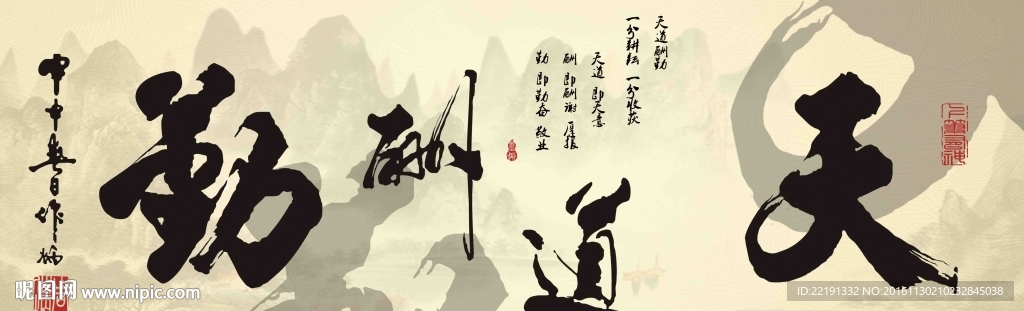 天道酬勤
天道酬勤
一分耕耘 一分收获
天道 即天意
酬 即酬谢 厚报
勤 即勤奋 敬业
昵图网 www.nipic.com
ID:22191332 NO:20151130210232845038